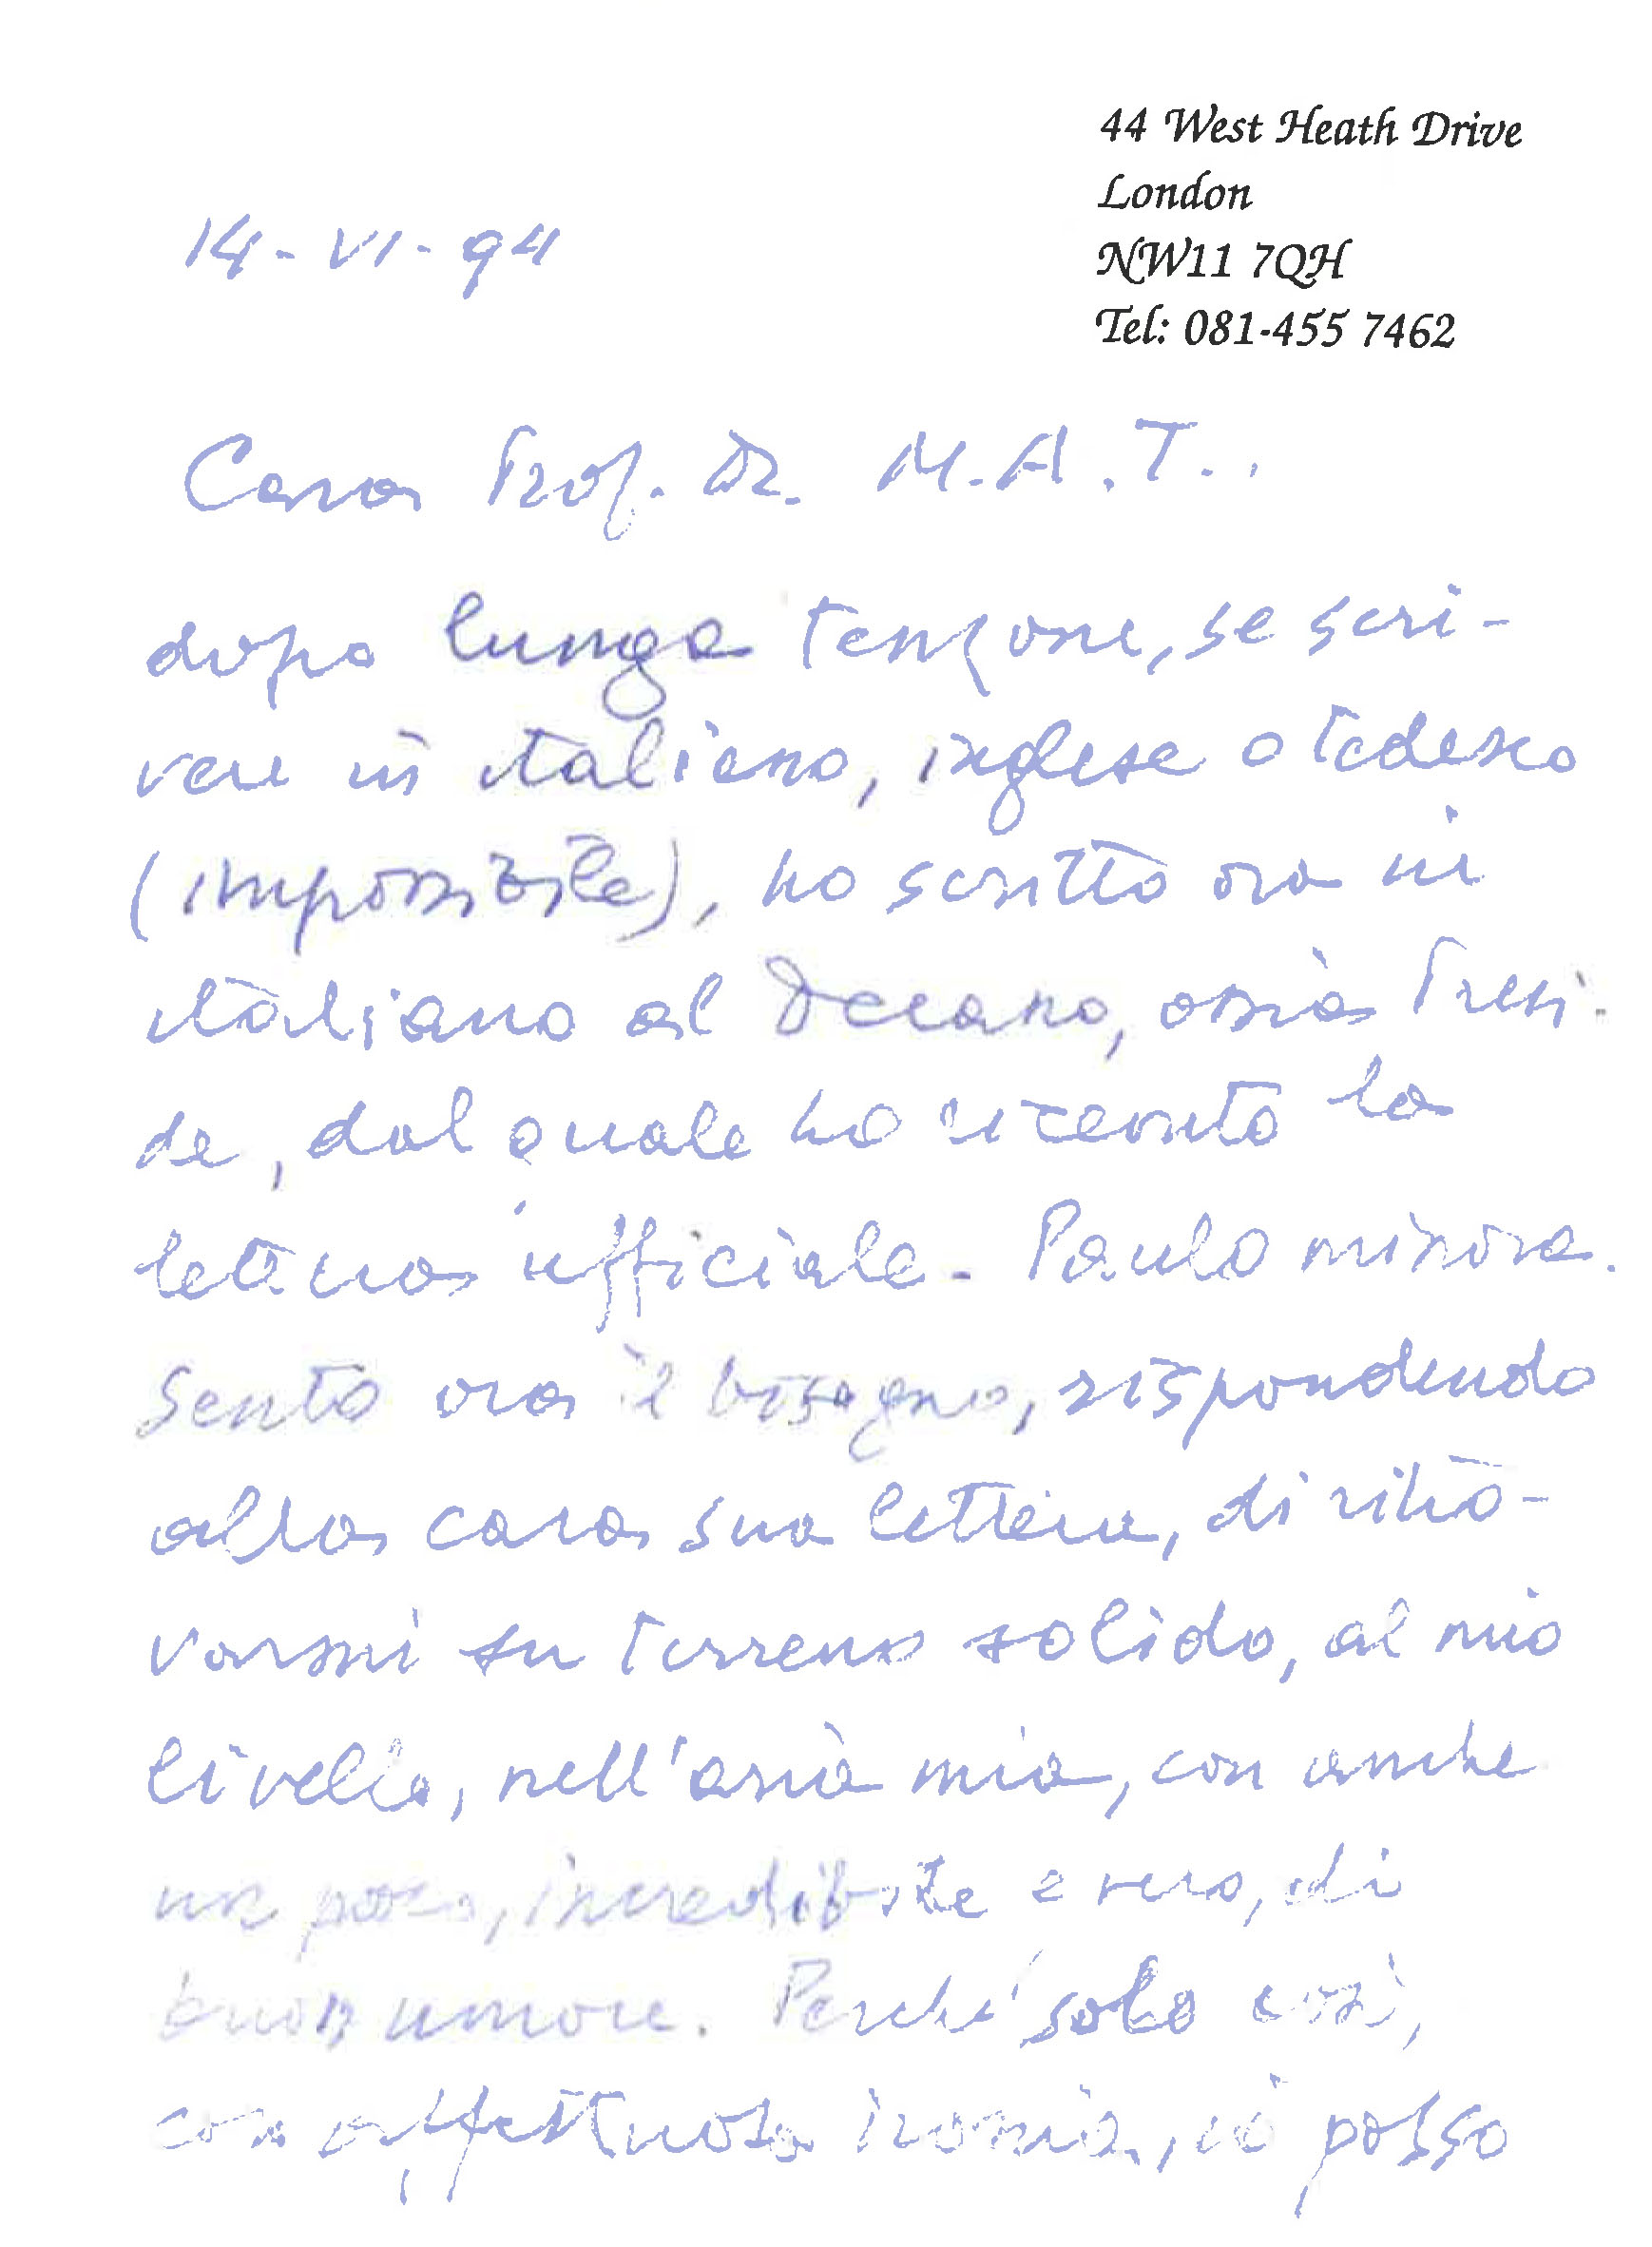 44 West Heath Drive
London
NW11 7QH
Tel: 081-455 7462
14-VI-94
Cara Prof. Dr. M.A.T.,
dopo lunga tenzone, se scri-
vere in italiano, inglese o tedesco
(impossibile), ho scritto ora in
italiano al Decano, ossia Presi-
de, dal quale ho ricevuto la
lettera ufficiale - Paulo minora.
Sento ora il bisogno, rispondendo
alla cara sua lettera, di ritro-
varmi su terreno solido, al mio
livello, nell'aria mia, con anche
un poco, incredibile e vero, di
buon umore. Perché solo così,
con affettuosa ironia, io posso